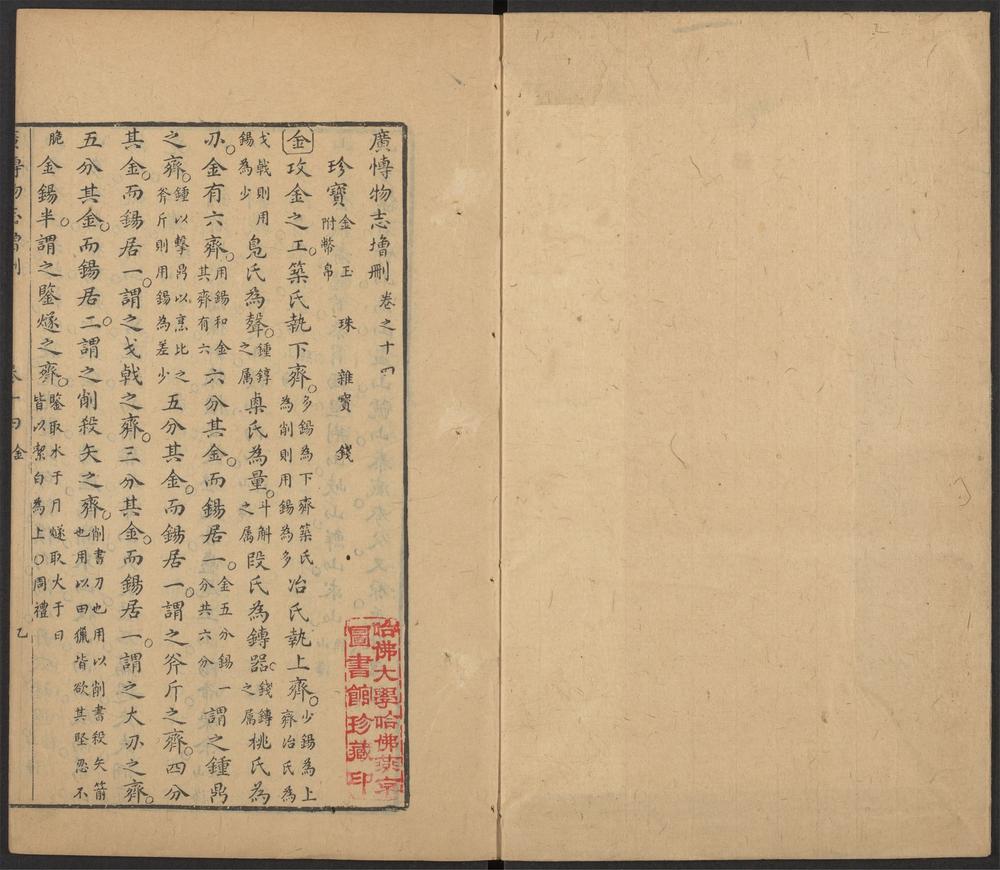 廣博物志增刪卷之十四
珍寶金 玉 珠 雜寶 錢 附幣帛
金攻金之工築氏執下齊多錫為下齊築氏為削則用錫為多冶氏執上齊少錫為上齊冶氏為
戈戟則用錫為少鳧氏為聲鍾錞之属㮚氏為量斗斛之属段氏為鏄器錢鏄之属桃氏為
刃金有六齊用錫和金其齊有六六分其金而錫居一金五分錫一分共六分謂之鍾鼎
之齊鍾以擊鼎以烹比之斧斤則用錫為差少五分其金而錫居一謂之斧斤之齊四分
其金而錫居一謂之戈戟之齊三分其金而錫居一謂之大刃之齊
五分其金而錫居二謂之削殺矢之齊削書刀也用以削書殺矢箭也用以田獵皆欲其堅忍不
脆金錫半謂之鑒燧之齊鑒取水于月燧取火于日皆以潔白為上○周禮
卷十四 金
乙
哈佛大學哈佛燕京
圖書館珍藏印